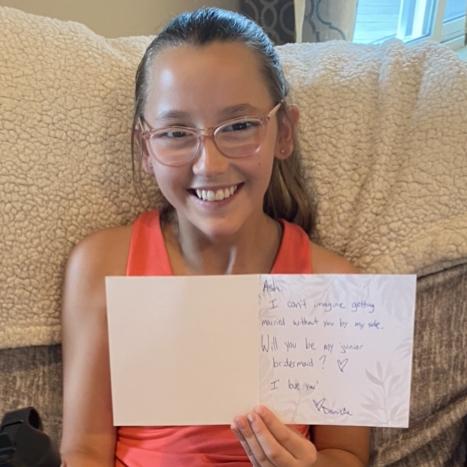 Ash,
I can't imagine getting
married without you by my side.
Will you be my junior
bridesmaid? ♡
I love you!
♡ Danielle